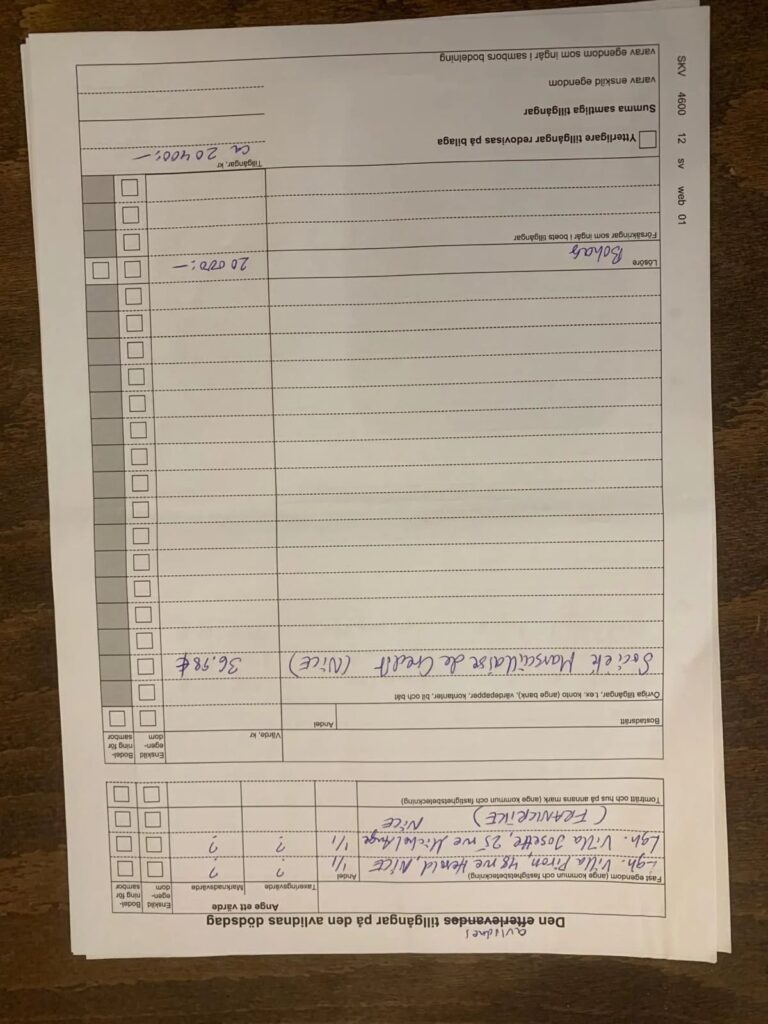 avlidnes
Den efterlevandes tillgångar på den avlidnas dödsdag
Ange ett värde
Fast egendom (ange kommun och fastighetsbeteckning)
Andel
Taxeringsvärde
Marknadsvärde
Enskild egen- dom
Bodel- ning för sambor
Lgh. Villa Piron, 48 rue Herold, NICE 1/1 ? ?
Lgh. Villa Josette, 25 rue Michel Ange 1/1 ? ?
(FRANKRIKE) NICE
Tomträtt och hus på annans mark (ange kommun och fastighetsbeteckning)
Bostadsrätt
Andel
Värde, kr
Enskild egen- dom
Bodel- ning för sambor
Övriga tillgångar, t.ex. konto (ange bank), värdepapper, kontanter, bil och båt
Société Marseillaise de Credit (NICE) 36.98 €
Lösöre
Bohag 20 000:-
Försäkringar som ingår i boets tillgångar
Tillgångar, kr
Ytterligare tillgångar redovisas på bilaga
ca 20 400:-
Summa samtliga tillgångar
varav enskild egendom
varav egendom som ingår i sambors bodelning
SKV 4600 12 sv web 01